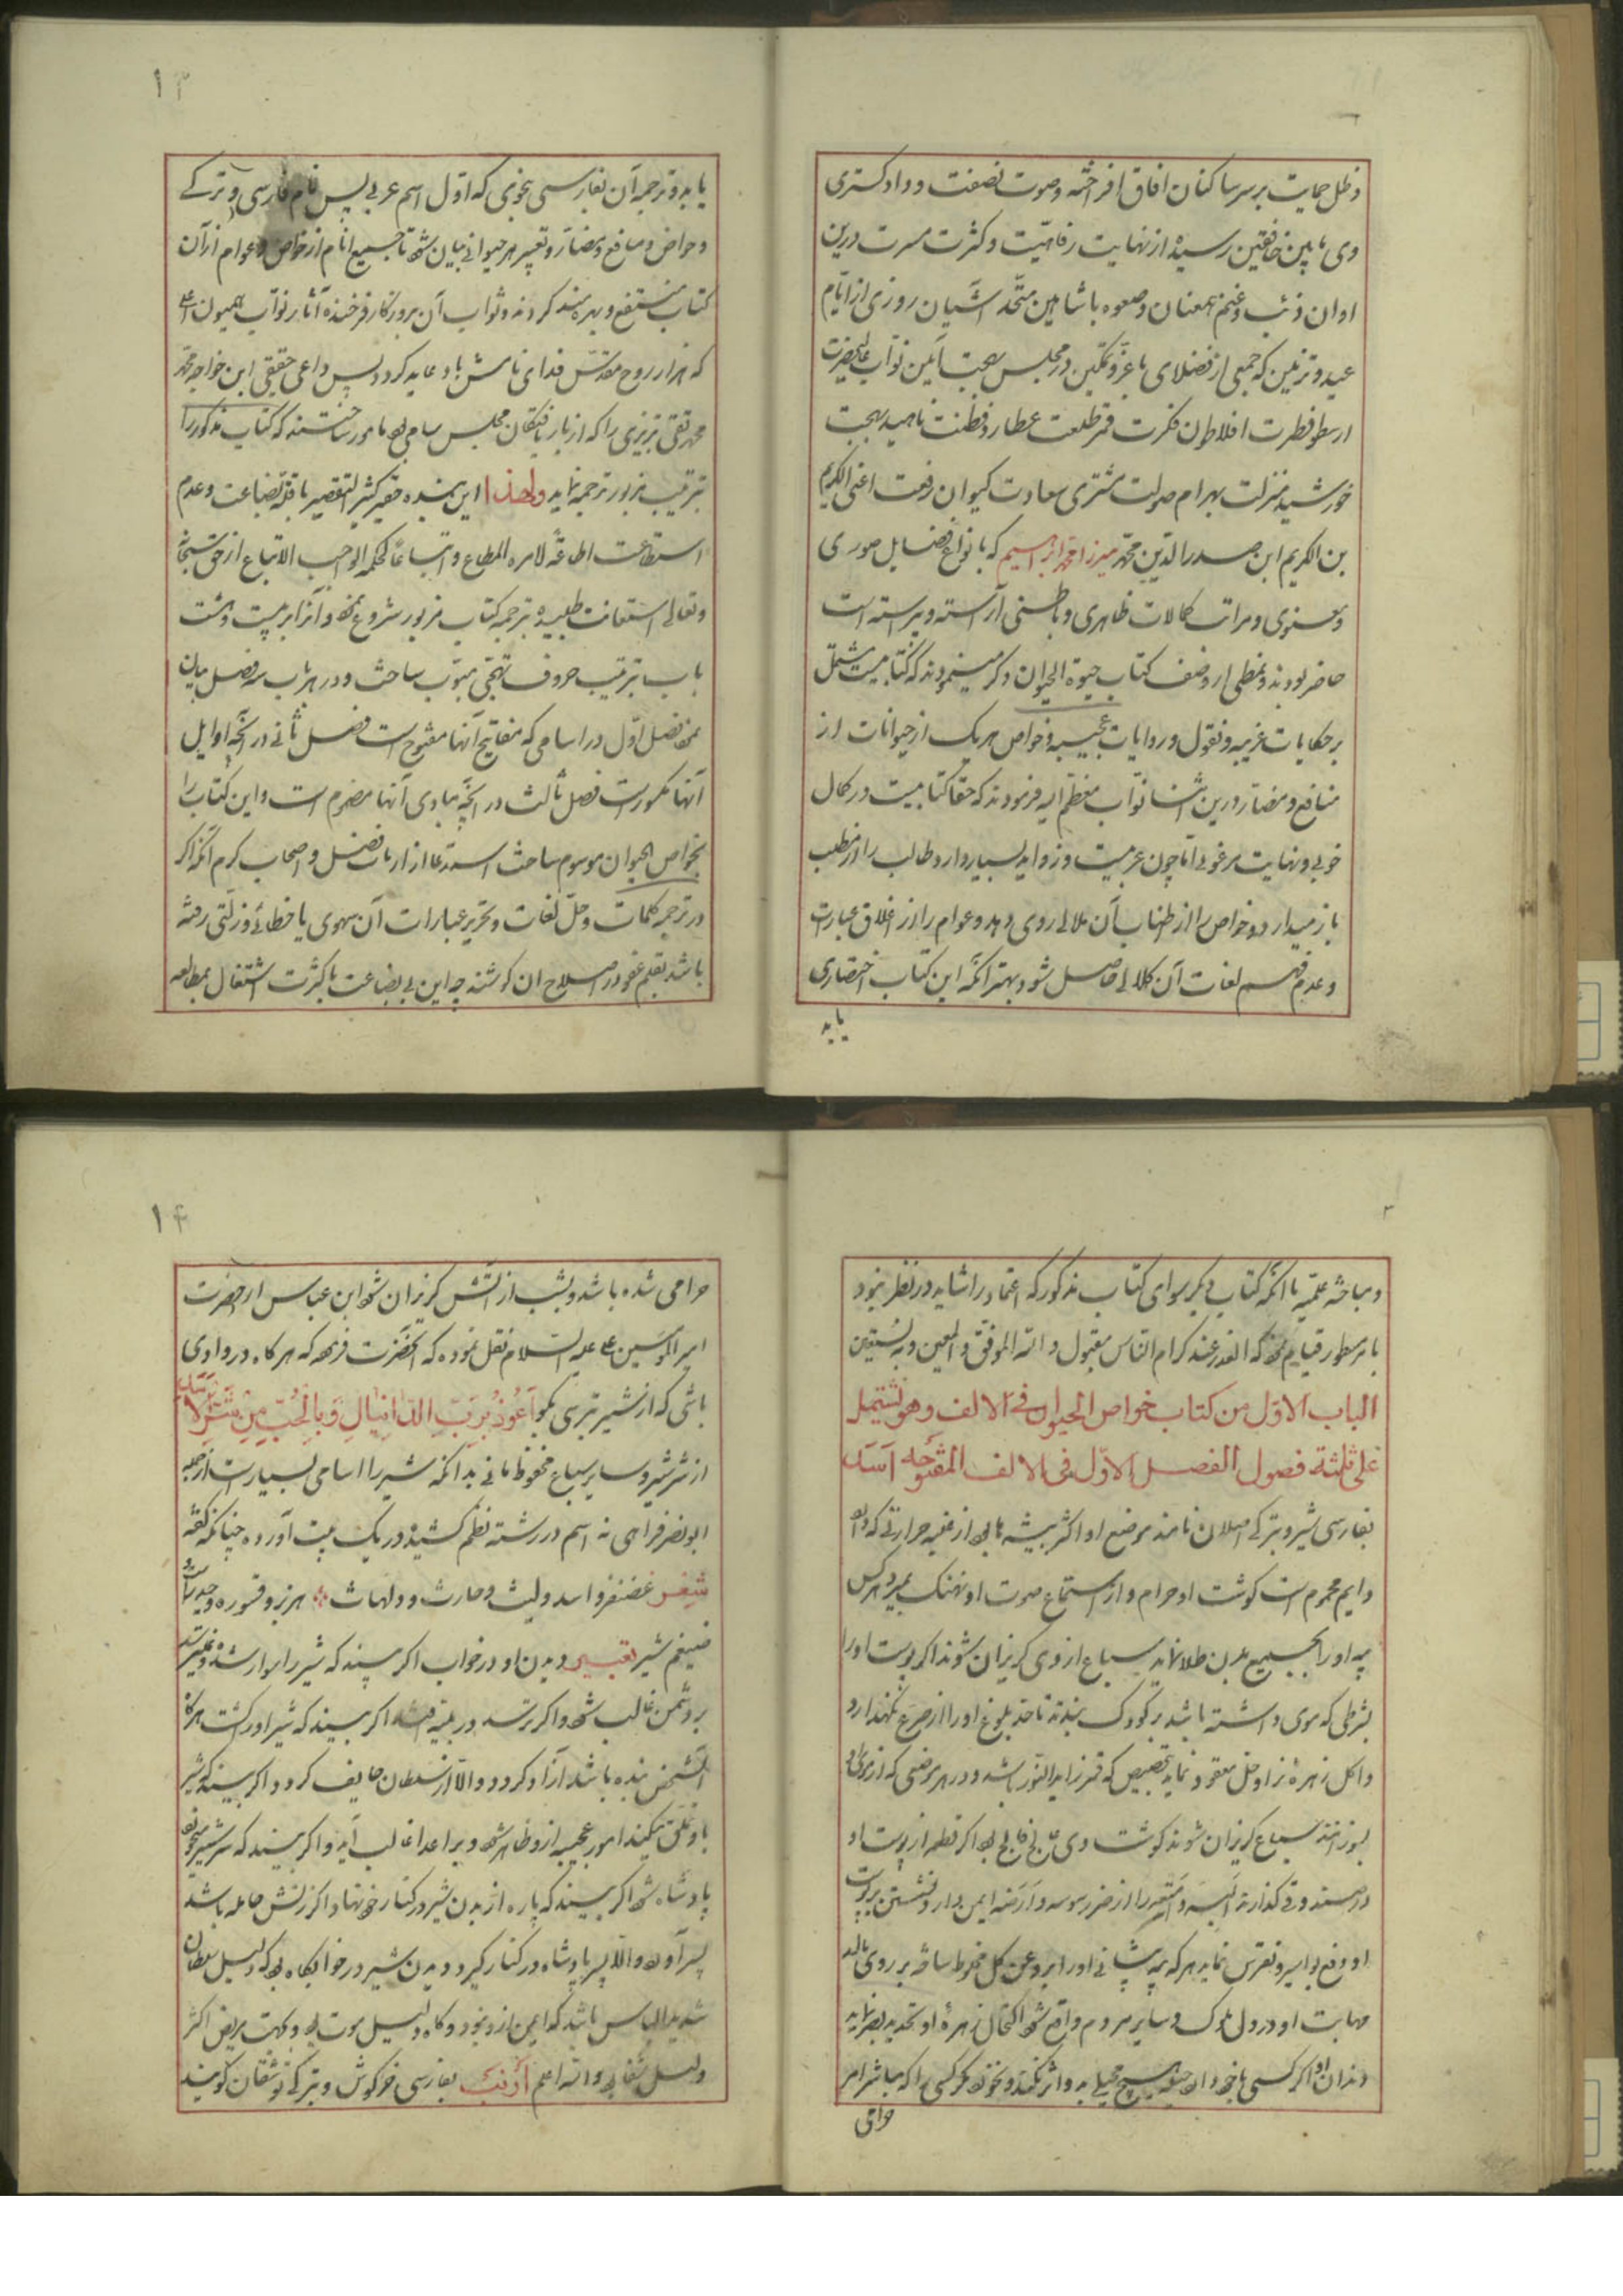 وظل حمایت بر سر ساکنان افاق افراخته وصوت نصفت و دادکستری
وی مابین خافقین رسیده از نهایت رفاهیت وکثرت مسرت درین
اوان ذئب وغنم همعنان وصعوه با شاهین متحد آشیان روزی از ایام
عید و تزیین که جمعی از فضلای با عز وتمکین در مجلس بهجت آیین نواب عالیحضرت
ارسطو فطرت افلاطون فکرت قمر طلعت عطارد فطنت ناهید بهجت
خورشید منزلت بهرام صولت مشتری سعادت کیوان رفعت اعنی الکریم
بن الکریم ابن صدرالدین محمد میرزا محمد ابراهیم که بانواع فضایل صوری
ومعنوی ومراتب کمالات ظاهری وباطنی آراسته وپیراسته است
حاضر بودند و از وصف کتاب حیوة الحیوان ذکر مینمودند که کتابیست مشتمل
بر حکایات غریبه ونقول وروایات عجیبه وخواص هریک از حیوانات از
منافع ومضار درین اثنا نواب معظم الیه فرمودند که حقا کتابیست در کمال
خوبی ونهایت مرغوبی اما چون عربیست وزواید بسیار دارد طالب را از مطلب
باز میدارد وخواص را از اطناب آن ملالی روی دهد وعوام را از اغلاق عبارت
وعدم فهم لغات آن کلالی حاصل شود بهتر آنکه این کتاب اختصاری
یابد
۱۳
یابد وترجمه آن بفارسی بنحوی که اول اسم عربی پس نام فارسی وترکی
وخواص ومنافع ومضار وتعبیر هر حیوانی بیان شود تا جمیع انام از خواص وعوام از آن
کتاب منتفع وبهره مند کردند وثواب آن بروزکار فرخنده آثار نواب همیون
که هزار روح مقدس فدای نامش باد عاید کردد پس داعی حقیقی ابن خواجه محمد
محمد تقی تبریزی را که از بار یافتکان مجلس سامی بود مامور ساختند که کتاب مذکور را
بترتیب مزبور ترجمه نماید ولهذا این بنده حقیر کثیر التقصیر با قلة بضاعت وعدم
استطاعت اطاعة لامره المطاع واتباعا لحکمه الواجب الاتباع از حق سبحانه
وتعالی استعانت طلبیده بترجمه کتاب مزبور شروع نمود وآنرا بر بیست وهشت
باب بترتیب حروف تهجی مبوب ساخت ودر هر باب سه فصل بیان
نمود فصل اول در اسامی که مفاتیح آنها مفتوح است فصل ثانی در آنچه اوایل
آنها مکسور است فصل ثالث در آنچه مبادی آنها مضموم است واین کتاب را
بخواص الحیوان موسوم ساخت استدعا از ارباب فضل واصحاب کرم آنکه اکر
در ترجمه کلمات وحل لغات وتحریر عبارات آن سهوی یا خطائی وزلتی رفته
باشد بقلم عفو در اصلاح آن کوشند چه این بی بضاعت با کثرت اشتغال بمطالعه
۳
ومباحثه علمیه با آنکه کتاب دیکر سوای کتاب مذکور که اعتماد را شاید در نظر نبود
بامر مسطور قیام نمود که العذر عند کرام الناس مقبول والله الموفق والمعین وبه نستعین
الباب الاول من کتاب خواص الحیوان فی الالف وهو یشتمل
علی ثلثة فصول الفصل الاول فی الالف المفتوحه اسد
بفارسی شیر وبترکی اصلان نامند موضع او اکثر بیشه ها بود از غلبه حرارتی که دارد
دایم محموم است کوشت او حرام واز استماع صوت او نهنک بمیرد هرکس
پیه او را بجمیع بدن طلا نماید سباع از وی کریزان شوند اکر پوست او را
بشرطی که موی داشته باشد بر کودک بندند تا حد بلوغ او را از صرع نکهدارد
واکل زهره نر او حل معقود نماید در هر موضعی که از موی او
بسوزانند سباع کریزان شوند کوشت وی فالج بود اکر قطعه از پوست او
در صندوقی کذارند البسه وامتعه را از ضرر سوس وارضه ایمن دارد ونشستن بر پوست
او دفع بواسیر ونقرس نماید هرکه پیه پیشانی او را بروغن کل مخلوط ساخته بر روی مالد
مهابت او در دل ملوک وسایر مردم واقع شود اکتحال زهره او تحدید بصر نماید
دندان او را اکر کسی با خود دارد هیچ وی اثر نکند هر کسی را که مباشر امر
حرامی
۱۴
حرامی شده باشد وبشب از آتش کریزان شود ابن عباس از حضرت
امیر المؤمنین علیه السلام نقل نموده که آنحضرت فرمود که هرکاه در وادی
باشی که از شیر بترسی بکو اَعُوذُ بِرَبِّ الدّانیالِ وَبِالْجُبِّ مِنْ شَرِّ الْاَسَدِ
از شر شیر وسایر سباع محفوظ مانی بدانکه شیر را اسامی بسیار است ازجمله
ابونصر فراهی نه اسم در رشته نظم کشیده در یک بیت آورده چنانکه کفته
شعر غضنفر واسد ولیث وحارث ودلهاث هزبر وقسوره وحیدر است
ضیغم شیر تعبیر دیدن او در خواب اکر بیند که شیر را سوار شده
بر دشمن غالب شود واکر ترسد در بلیه افتد اکر بیند که شیر او را کشت هرکاه
آنشخص بنده باشد آزاد کردد والا از سلطان خایف کردد اکر بیند که شیر
با او تملق میکند امور عجیبه ازو ظاهر شود وبر اعدا غالب آید واکر بیند که سر شیر میخورد
پادشاه شود اکر بیند که پاره از بدن شیر در کنار خود نهاد اکر زنش حامله باشد
پسر آورد والا پسر پادشاه در کنار کیرد ودیدن شیر در خواب کاه بود که دلیل سلطان
شدید الباس باشد که ایمن ازو نبود وکاه دلیل موت بود وبجهت مریض اکثر
دلیل شفا بود والله اعلم ارنب بفارسی خرکوش وبترکی توشقان کویند